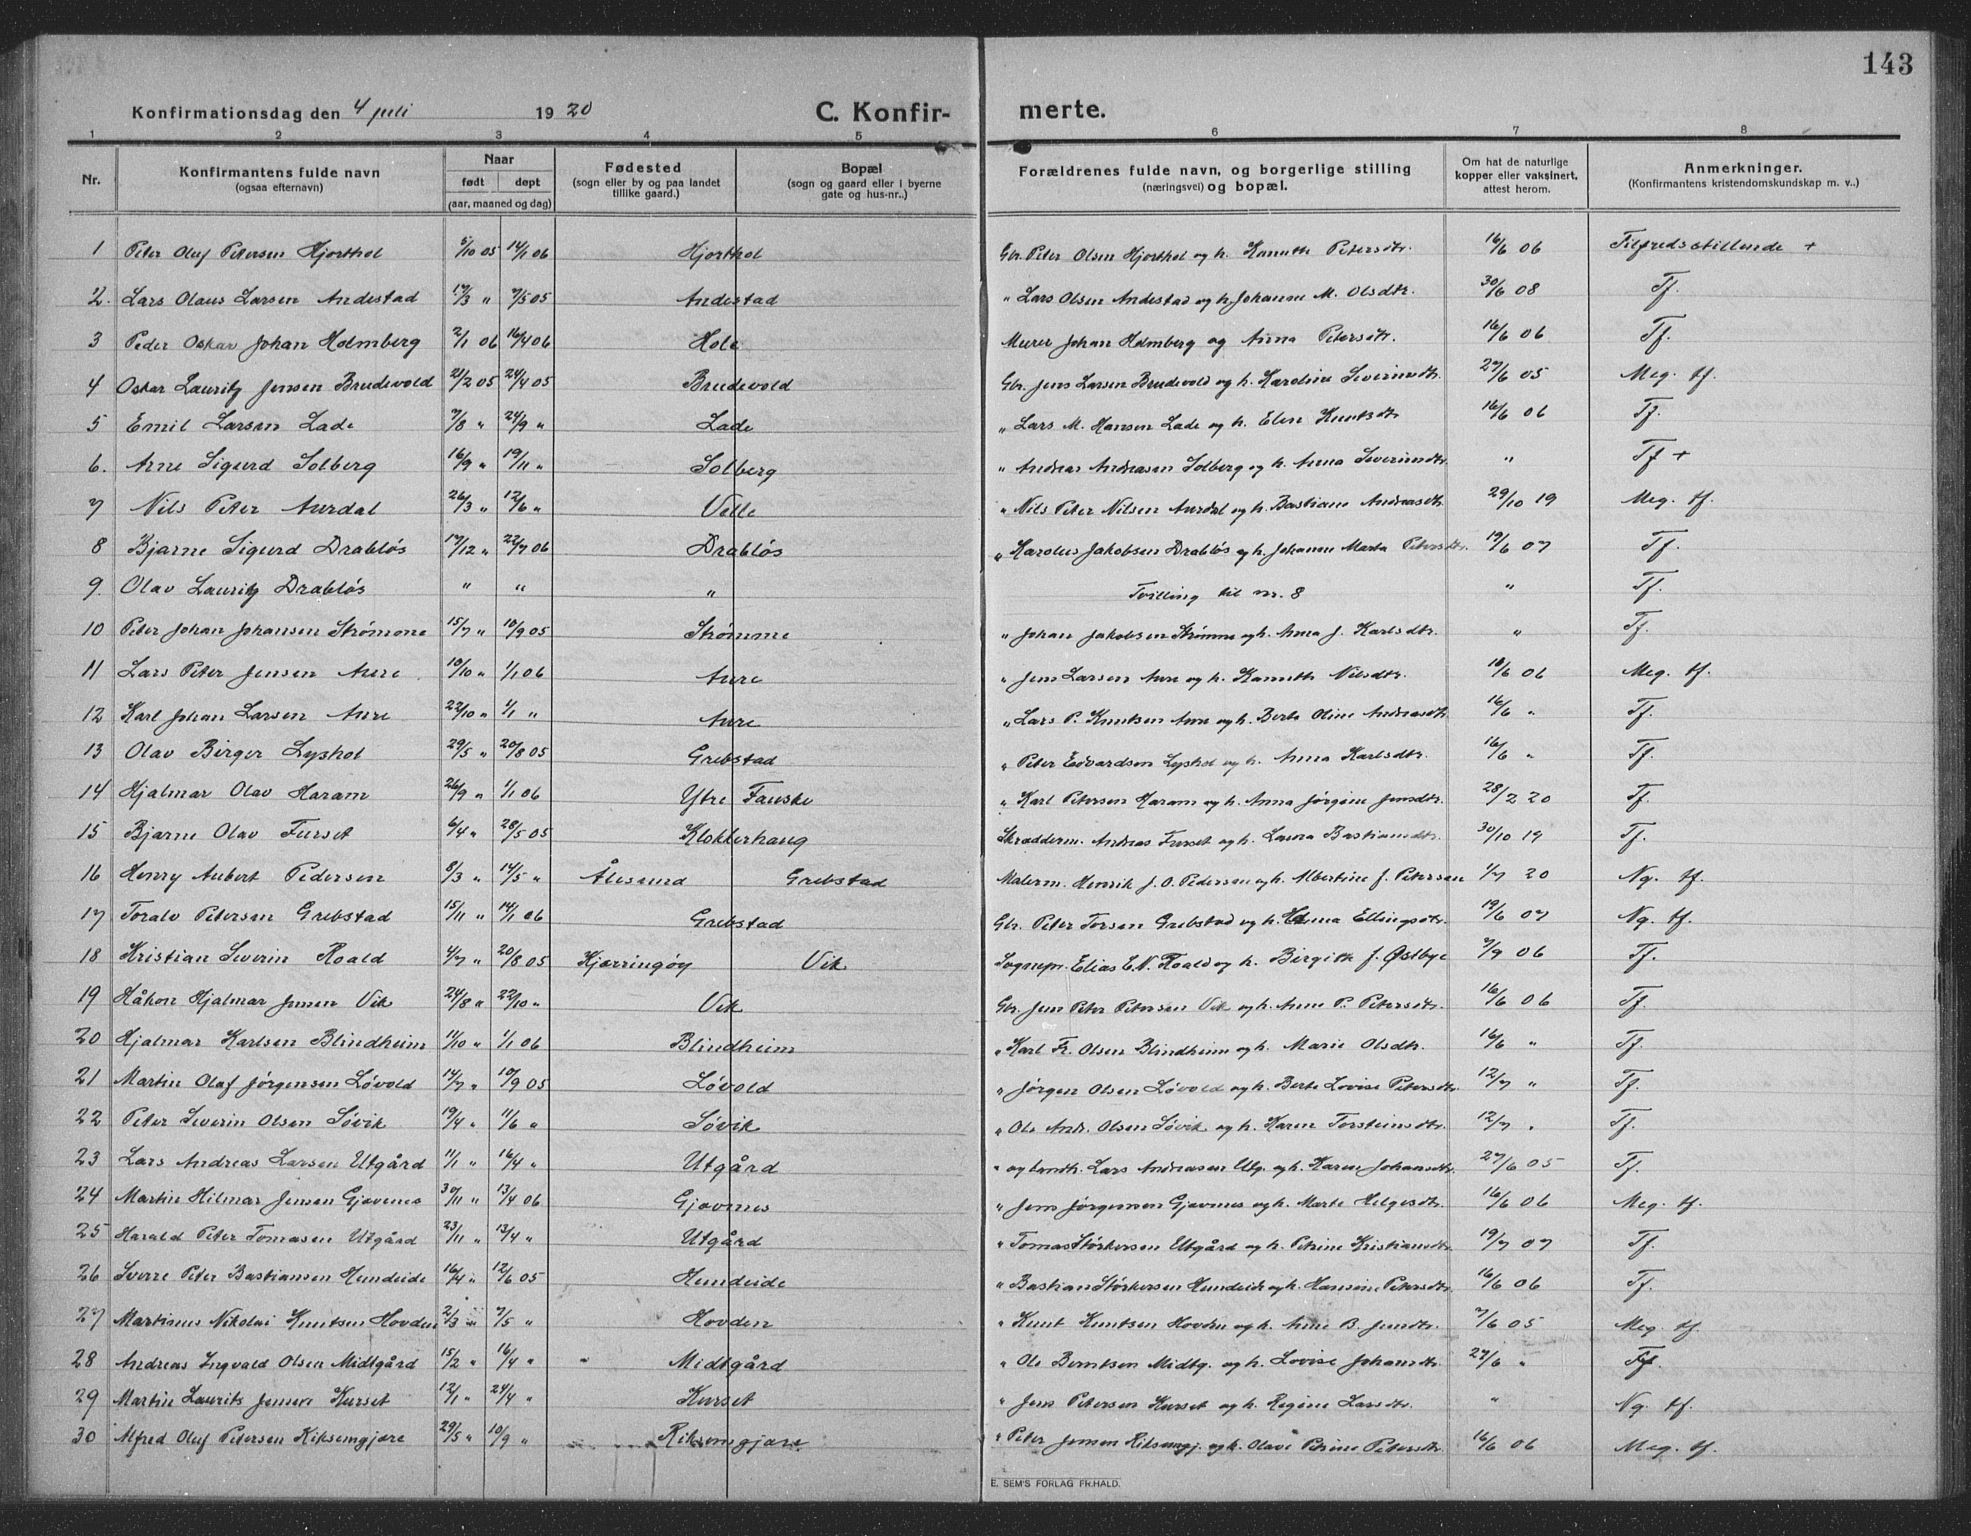 143
Konfirmationsdag den 4 juli 1920 C. Konfirmerte.
1 2 3 4 5 6 7 8
Nr. Konfirmantens fulde navn (ogsaa efternavn) Naar født døpt (aar, maaned og dag) Fødested (sogn eller by og paa landet tillike gaard.) Bopæl (sogn og gaard eller i byerne gate og hus-nr..) Forældrenes fulde navn, og borgerlige stilling (næringsvei) og bopæl. Om hat de naturlige kopper eller vaksinert, attest herom. Anmerkninger. (Konfirmantens kristendomskundskap m. v..)
1 Peter Oluf Petersen Hjorthol 5/10 05 14/1 06 Hjorthol Gbr. Peter Olsen Hjorthol og h. Kanutte Petersdtr. 16/6 06 Tilfredsstillende +
2. Lars Olaus Larsen Andestad 17/3 " 7/5 05 Andestad " Lars Olsen Andestad og h. Johanne M. Olsdtr. 30/6 08 Tf.
3 Peder Oskar Johan Holmberg 2/1 06 16/4 06 Hole Murer Johan Holmberg og Anna Petersdtr. 16/6 06 Tf.
4 Oskar Lauritz Jensen Brudevold 21/2 05 24/4 05 Brudevold Gbr. Jens Larsen Brudevold og h. Karoline Severinsdtr. 27/6 05 Meg. tf.
5 Emil Larsen Lade 7/8 " 24/9 " Lade " Lars M. Hansen Lade og h. Eline Knutsdtr. 16/6 06 Tf.
6. Arne Sigurd Solberg 16/9 " 19/11 " Solberg " Andreas Andreasen Solberg og h. Anna Severinsdtr. " Tf +
7 Nils Peter Aurdal 26/3 " 12/6 " Velle " Nils Peter Nilsen Aurdal og h. Bastiane Andreasdtr. 29/10 19 Meg. tf.
8 Bjarne Sigurd Drabløs 17/12 " 22/7 06 Drabløs " Karolus Jakobsen Drabløs og h. Johanne Marta Petersdtr. 19/6 07 Tf.
9. Olav Lauritz Drabløs " " " Tvilling til nr. 8 " Tf.
10 Peter Johan Johansen Strømme 15/7 " 10/9 05 Strømme " Johan Jakobsen Strømme og h. Anna J. Karlsdtr. " Tf.
11 Lars Peter Jensen Aure 10/10 " 1/1 06 Aure " Jens Larsen Aure og h. Kanutte Nilsdtr. 16/6 06 Meg. tf.
12 Karl Johan Larsen Aure 22/10 " 1/1 " Aure " Lars P. Knutsen Aure og h. Berte Oline Andreasdtr. 16/6 " Tf.
13 Olav Birger Lyshol 29/5 " 20/8 05 Grebstad " Peter Edvardsen Lyshol og h. Anna Karlsdtr. 16/6 " Tf.
14 Hjalmar Olav Haram 26/9 " 1/1 06 Ytre Fauske " Karl Petersen Haram og h. Anna Jørgine Jensdtr. 28/2 20 Tf.
15 Bjarne Olav Furset 6/4 " 28/5 05 Klokkerhaug Skræddern. Andreas Furset og h. Laura Bastiansdtr. 30/10 19 Tf.
16 Henry Aubert Pedersen 8/3 " 14/5 " Ålesund Grebstad Malerm. Henrik J. O. Pedersen og h. Albertine J. Petersen 1/7 20 Ng. tf.
17 Toralv Petersen Grebstad 15/11 " 14/1 06 Grebstad Gbr. Peter Torsen Grebstad og h. Hanna Ellingsdtr. 19/6 07 Ng. tf.
18 Kristian Severin Roald 4/7 " 20/8 05 Kjerringøy Vik Sognepr. Elias E. N. Roald og h. Birgitte J. Østbye 7/9 06 Tf.
19 Håkon Hjalmar Jensen Vik 24/8 " 22/10 " Vik Gbr. Jens Peter Petersen Vik og h. Anne P. Petersdtr. 16/6 06 Tf.
20 Hjalmar Karlsen Blindheim 11/10 " 1/1 06 Blindheim " Karl Fr. Olsen Blindheim og h. Marie Olsdtr. 16/6 " Tf.
21 Martin Olaf Jørgensen Løvold 14/7 " 10/9 05 Løvold " Jørgen Olsen Løvold og h. Berte Lovise Petersdtr. 12/7 " Tf.
22 Peter Severin Olsen Søvik 19/4 " 11/6 " Søvik " Ole Andr. Olsen Søvik og h. Karen Torsteinsdtr. 12/7 " Tf.
23 Lars Andreas Larsen Utgård 11/1 " 16/4 " Utgård " og landh. Lars Andreasen Utg. og h. Karen Johansdtr. 27/6 05 Tf.
24 Martin Hilmar Jensen Gjævenes 30/11 " 13/4 06 Gjævenes " Jens Jørgensen Gjævenes og h. Marte Helgesdtr. 16/6 06 Meg. tf.
25 Harald Peter Tomasen Utgård 23/11 " 13/4 " Utgård " Tomas Størkersen Utgård og h. Petrine Kristiansdtr. 19/7 07 Tf.
26 Sverre Peter Bastiansen Hundeide 16/4 " 12/6 05 Hundeide " Bastian Størkersen Hundeide og h. Hansine Petersdtr. 16/6 06 Tf.
27 Martinus Nikolai Knutsen Hovden 2/3 " 7/5 " Hovden " Knut Knutsen Hovden og h. Anne B. Jensdtr. 7/6 05 Meg. tf.
28 Andreas Ingvald Olsen Midtgård 15/2 " 16/4 " Midtgård " Ole Berntsen Midtg. og h. Lovise Johansdtr. 27/6 " Tf.
29 Martin Laurits Jensen Kurset 12/1 " 24/4 " Kurset " Jens Petersen Kurset og h. Regine Larsdtr. " Ng. tf.
30 Alfred Oluf Petersen Riksemgjære 29/5 " 10/9 " Riksemgjære " Peter Jensen Riksemgj. og h. Olave Petrine Petersdtr. 16/6 06 Meg. tf.
E. SEM'S FORLAG FR.HALD.